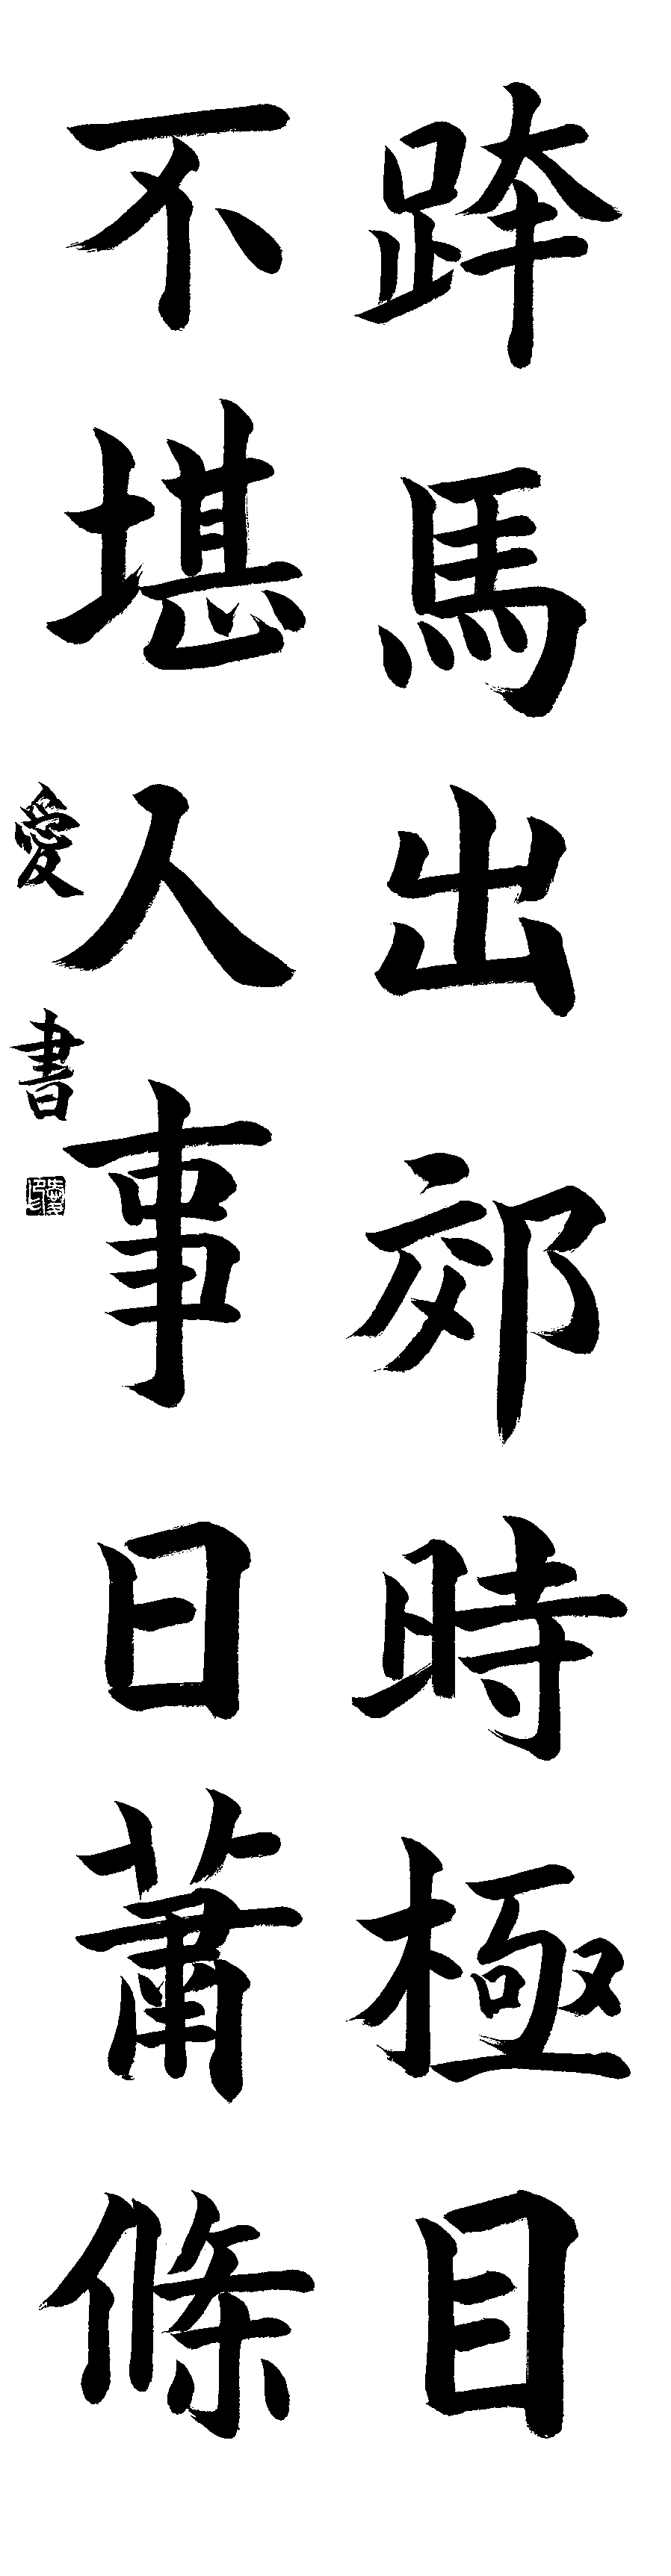 跨馬出郊時極目
不堪人事日蕭條
愛書